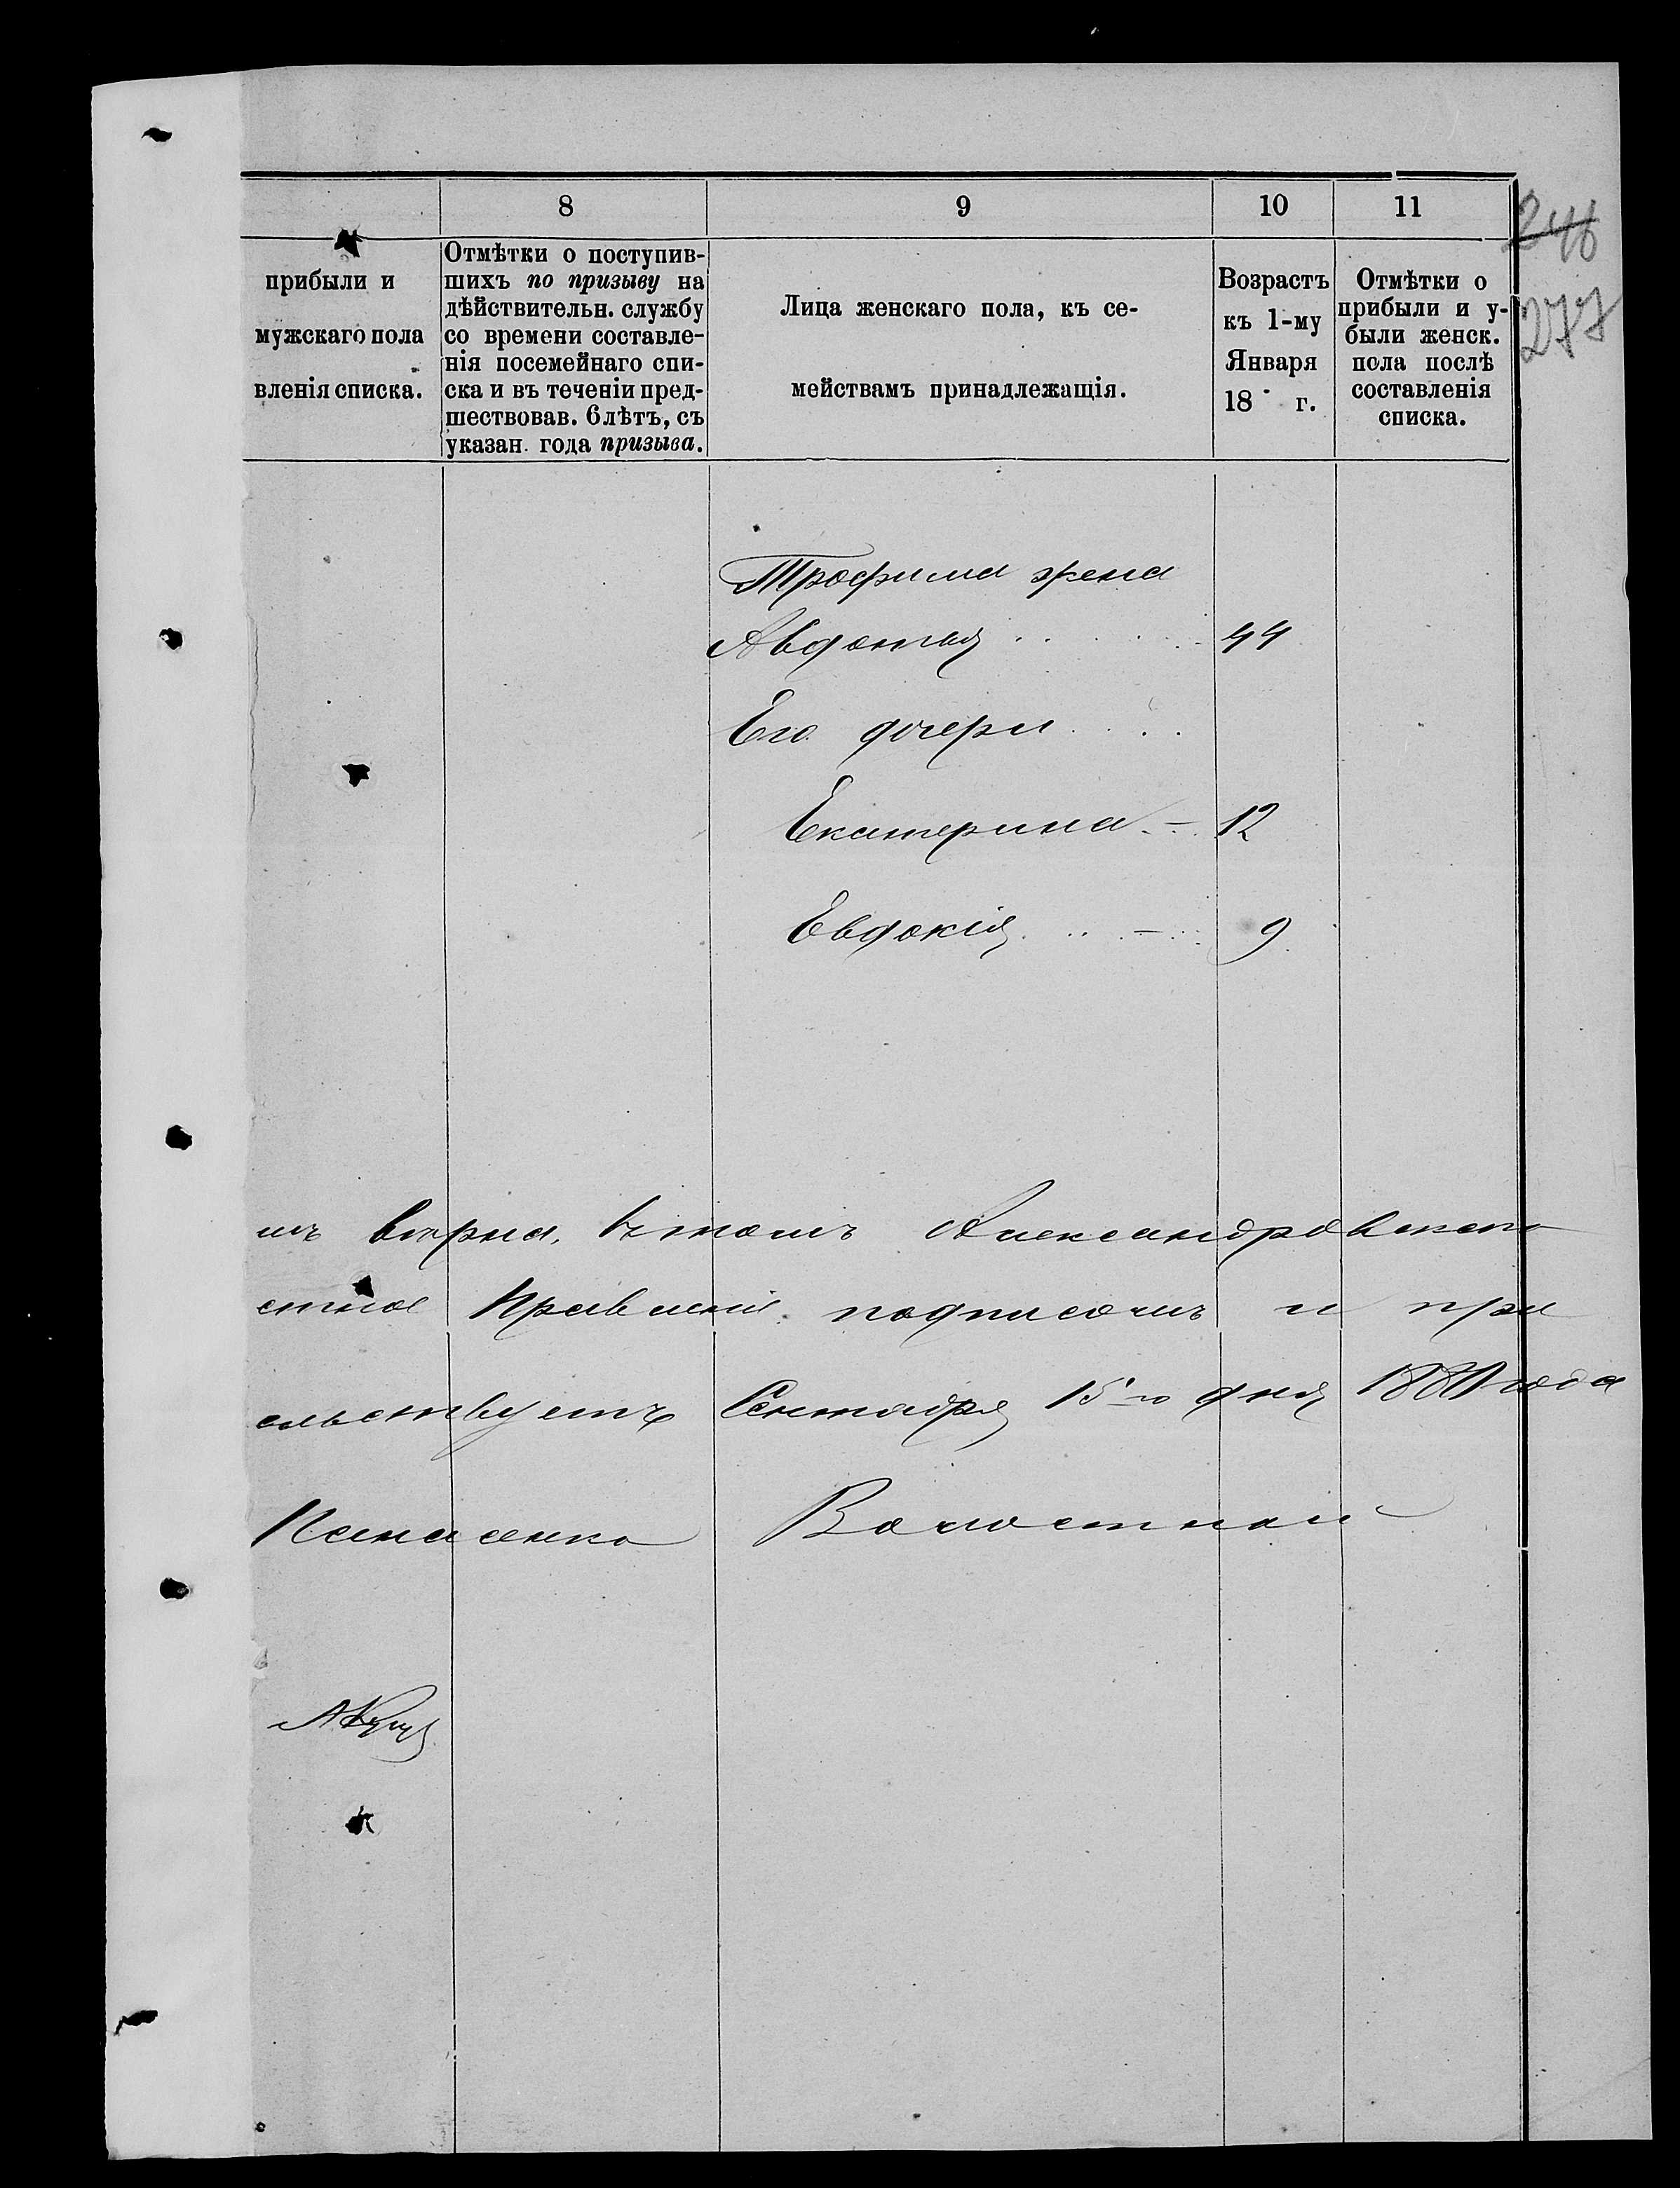 8 9 10 11
246
277
прибыли и
мужскаго пола
вленія списка.
Отмѣтки о поступив-
шихъ по призыву на
дѣйствительн. службу
со времени составле-
нія посемейнаго спи-
ска и въ теченіи пред-
шествовав. 6 лѣтъ, съ
указан. года призыва.
Лица женскаго пола, къ се-
мействамъ принадлежащія.
Возрастъ
къ 1-му
Января
18 г.
Отмѣтки о
прибыли и у-
были женск.
пола послѣ
составленія
списка.
Трофима жена
Авдотья 44
Его дочери
Екатерина 12
Евдокія 9
мъ вѣрна, въ томъ Александровское
стное Правленіе подписомъ и при
ельствуетъ Сентября 15го дня 1880 года
Панасенко Волостной